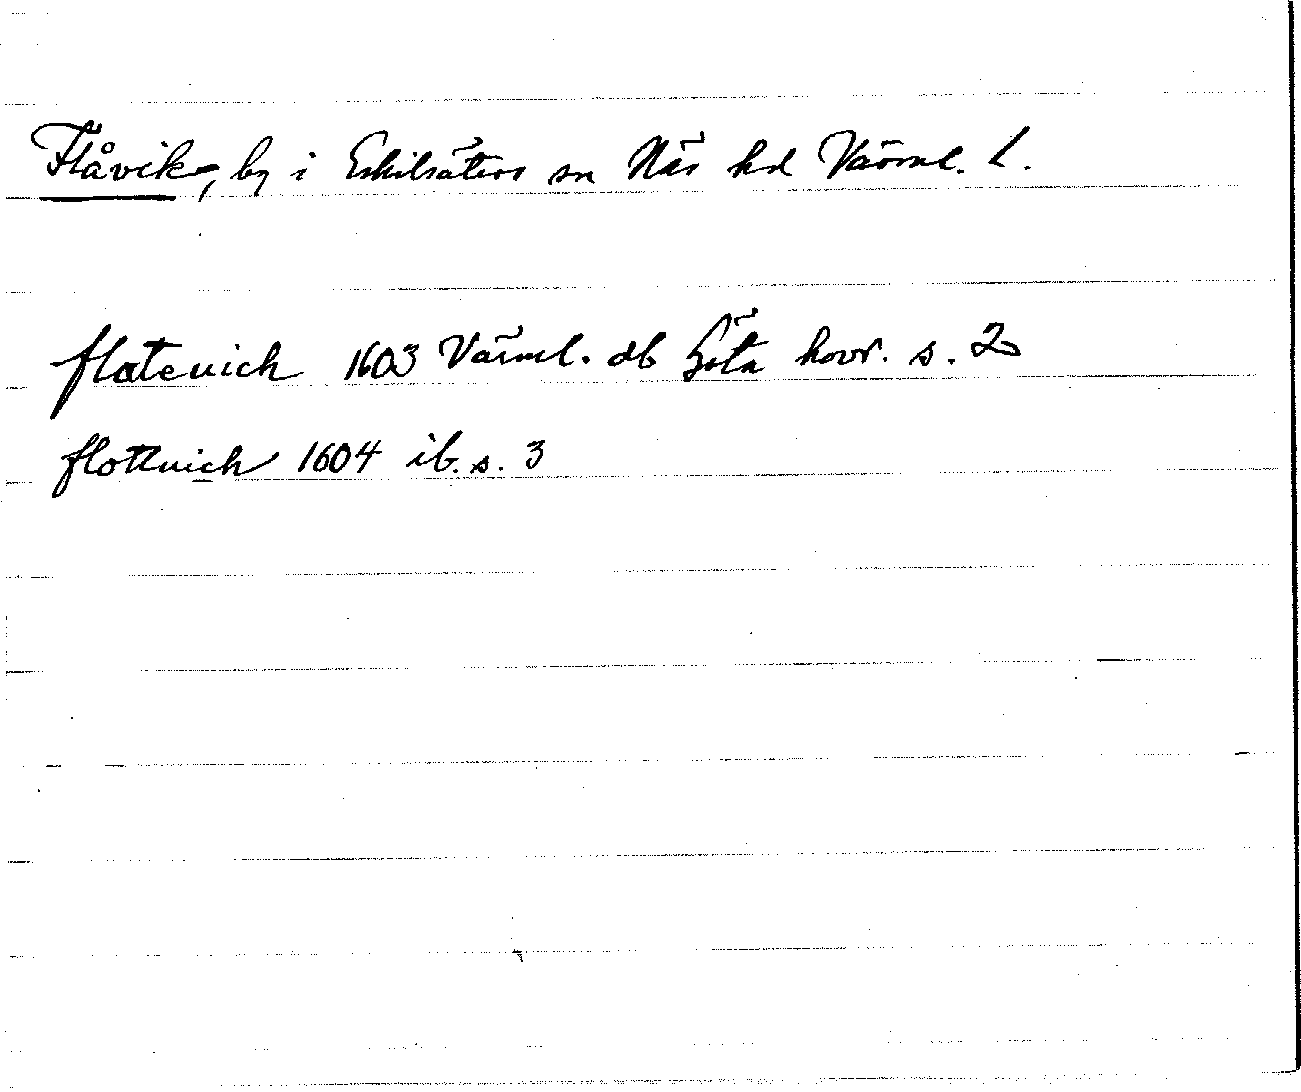 Flåvik, by i Eskilsäters sn Näs hd Värml. l.
flatevich 1603 Värml. db Göta hovr. s. 2
flottuich 1604 ib. s. 3